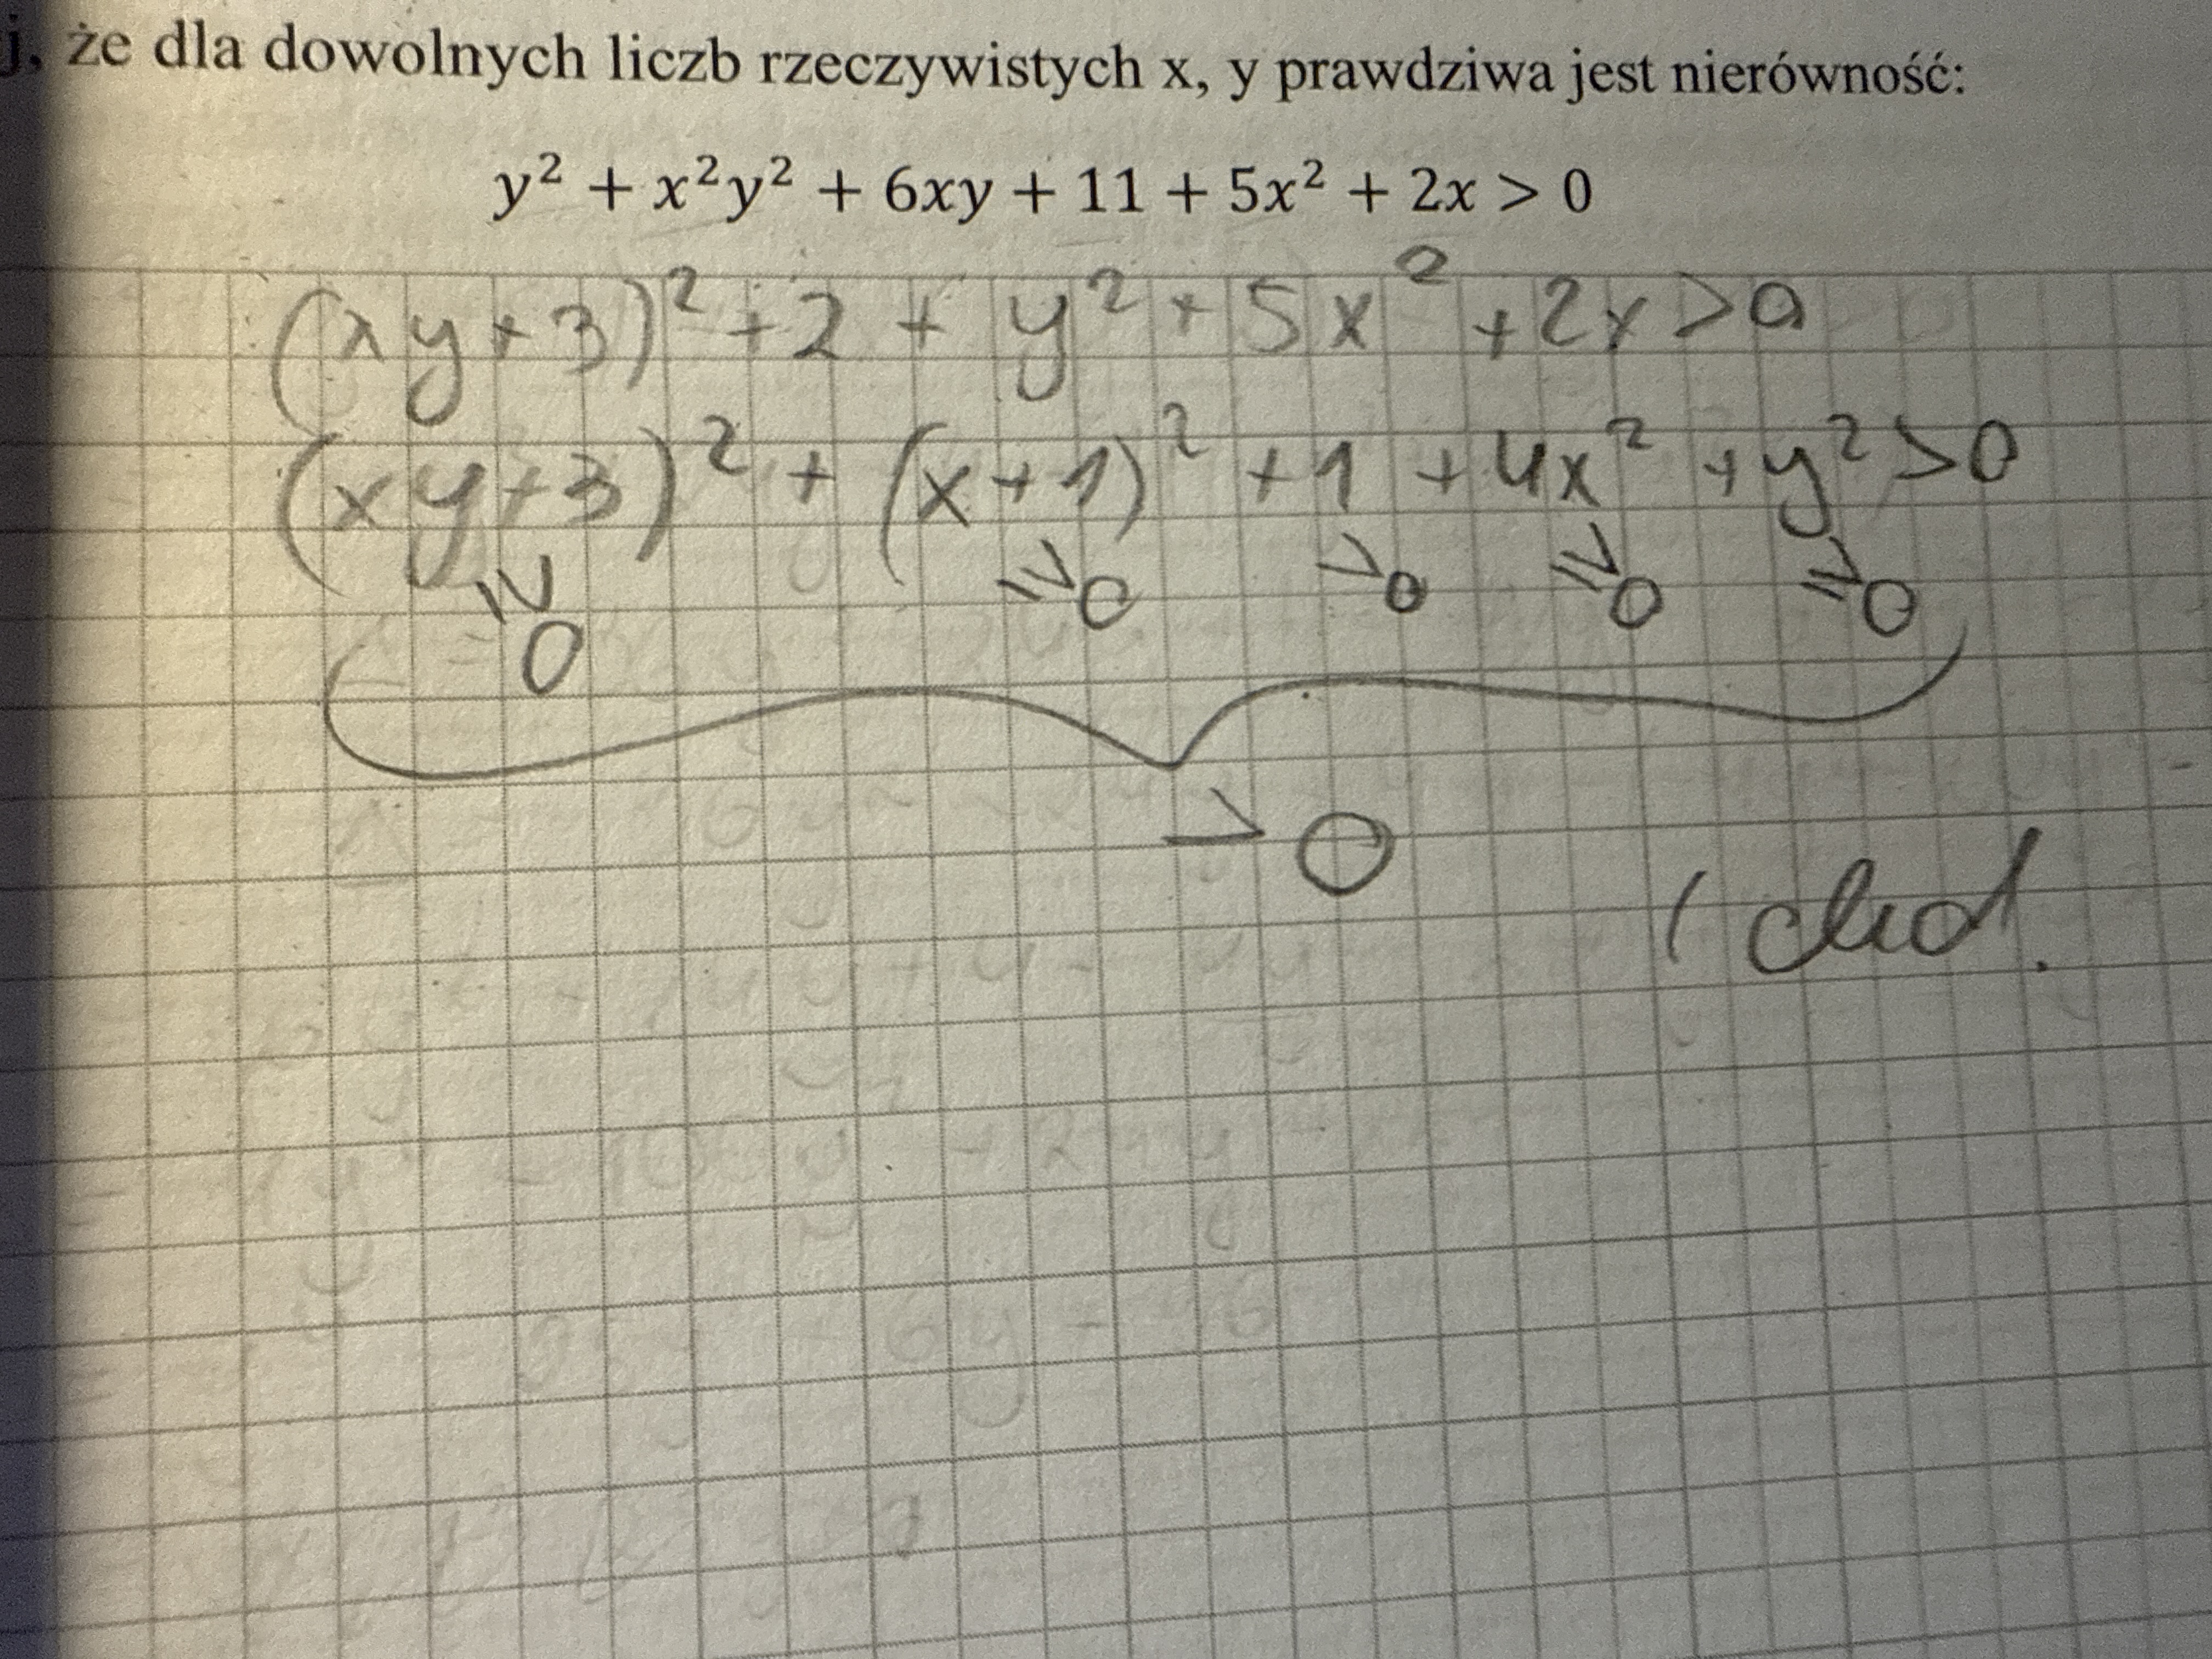 j, że dla dowolnych liczb rzeczywistych x, y prawdziwa jest nierówność:
y² + x²y² + 6xy + 11 + 5x² + 2x > 0
(xy+3)² + 2 + y² + 5x² + 2x > 0
(xy+3)² + (x+1)² + 1 + 4x² + y² > 0
≥0 ≥0 >0 ≥0 ≥0
> 0